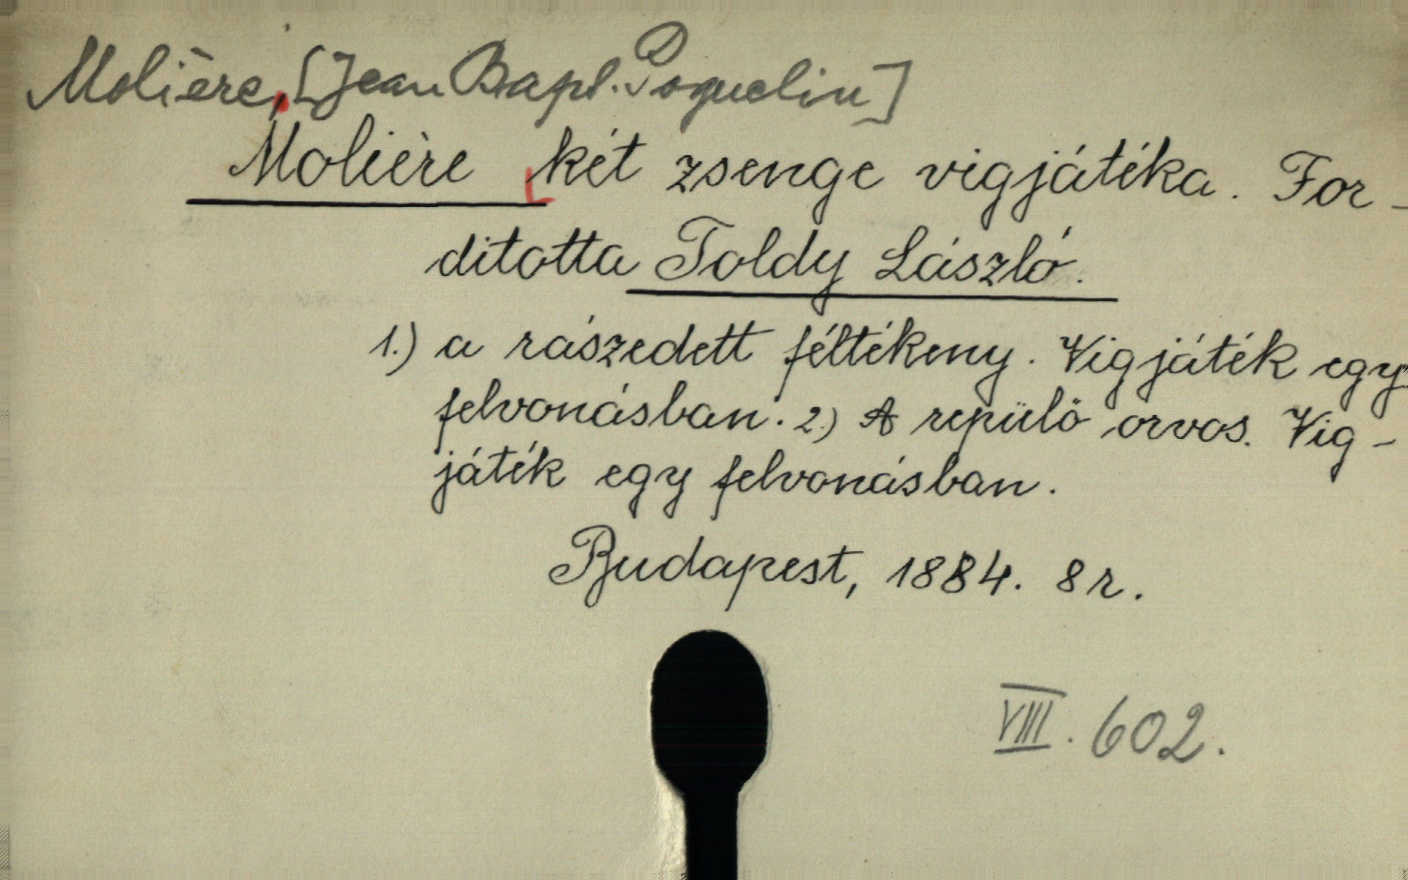 Molière, [Jean Bapt. Poquelin]
Molière két zsenge vigjátéka. For-
ditotta Toldy László.
1.) a rászedett féltékeny. Vigjáték egy
felvonásban. 2.) A repülő orvos. Vig-
játék egy felvonásban.
Budapest, 1884. 8r.
VIII. 602.